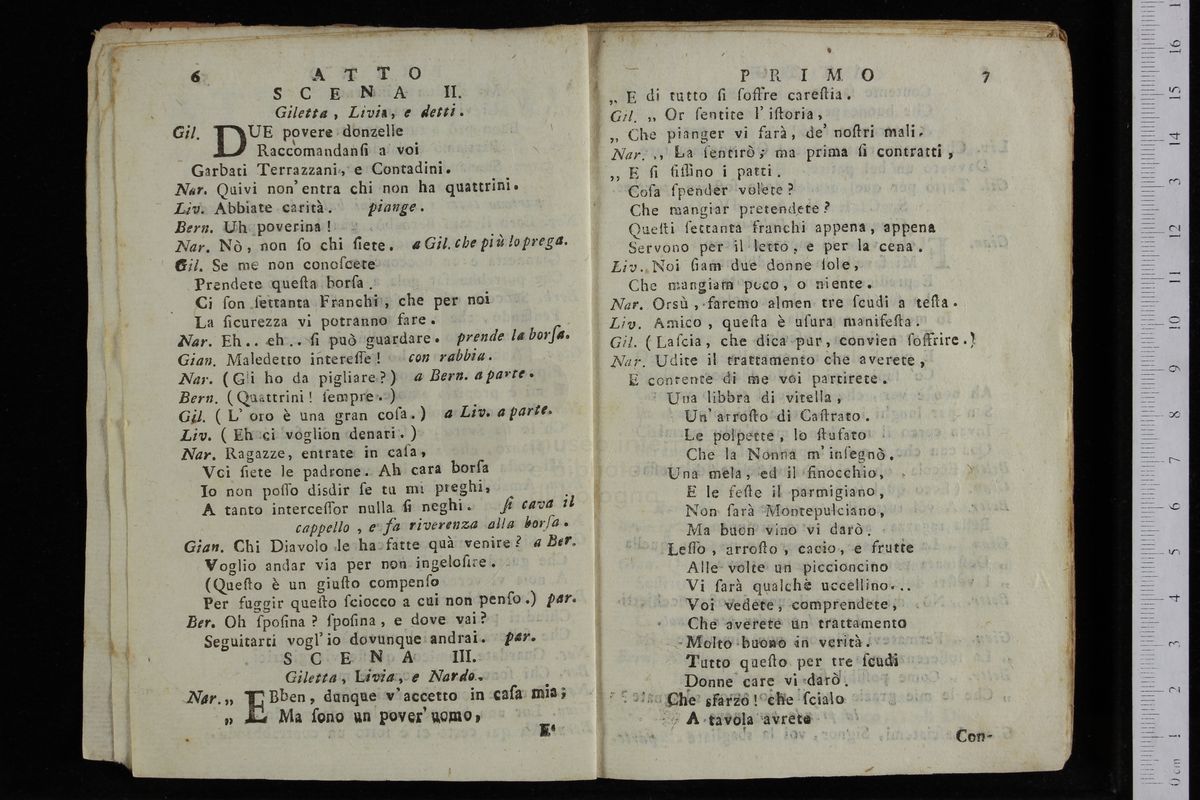 6 ATTO
SCENA II.
Giletta, Livia, e detti.
Gil. DUE povere donzelle
Raccomandanſi a voi
Garbati Terrazzani, e Contadini.
Nar. Quivi non' entra chi non ha quattrini.
Liv. Abbiate carità. piange.
Bern. Uh poverina!
Nar. Nò, non ſo chi ſiete. a Gil. che più lo prega.
Gil. Se me non conoſcete
Prendete queſta borſa.
Ci ſon ſettanta Franchi, che per noi
La ſicurezza vi potranno fare.
Nar. Eh.. eh.. ſi può guardare. prende la borſa.
Gian. Maledetto intereſſe! con rabbia.
Nar. (Gli ho da pigliare?) a Bern. a parte.
Bern. (Quattrini! ſempre.)
Gil. (L' oro è una gran coſa.) a Liv. a parte.
Liv. (Eh ci voglion denari.)
Nar. Ragazze, entrate in caſa,
Voi ſiete le padrone. Ah cara borſa
Io non poſſo disdir ſe tu mi preghi,
A tanto interceſſor nulla ſi neghi. ſi cava il
cappello, e fa riverenza alla borſa.
Gian. Chi Diavolo le ha fatte quà venire? a Ber.
Voglio andar via per non ingeloſire.
(Queſto è un giuſto compenſo
Per fuggir queſto ſciocco a cui non penſo.) par.
Ber. Oh ſpoſina? ſpoſina, e dove vai?
Seguitarti vogl' io dovunque andrai. par.
SCENA III.
Giletta, Livia, e Nardo.
Nar. „ EBben, dunque v' accetto in caſa mia;
„ Ma ſono un pover' uomo,
E'
PRIMO 7
„ E di tutto ſi ſoffre careſtia.
Gil. „ Or ſentite l' iſtoria,
„ Che pianger vi farà, de' noſtri mali.
Nar. „ La ſentirò; ma prima ſi contratti,
„ E ſi fiſſino i patti.
Coſa ſpender volete?
Che mangiar pretendete?
Queſti ſettanta franchi appena, appena
Servono per il letto, e per la cena.
Liv. Noi ſiam due donne ſole,
Che mangiam poco, o niente.
Nar. Orsù, faremo almen tre ſcudi a teſta.
Liv. Amico, queſta è uſura manifeſta.
Gil. (Laſcia, che dica pur, convien ſoffrire.)
Nar. Udite il trattamento che averete,
E contente di me voi partirete.
Una libbra di vitella,
Un' arroſto di Caſtrato.
Le polpette, lo ſtufato
Che la Nonna m' inſegnò.
Una mela, ed il finocchio,
E le feſte il parmigiano,
Non ſarà Montepulciano,
Ma buon vino vi darò.
Leſſo, arroſto, cacio, e frutte
Alle volte un piccioncino
Vi ſarà qualchè uccellino...
Voi vedete, comprendete,
Che averete un trattamento
Molto buono in verità.
Tutto queſto per tre ſcudi
Donne care vi darò.
Che sfarzo! che ſcialo
A tavola avrete
Con-